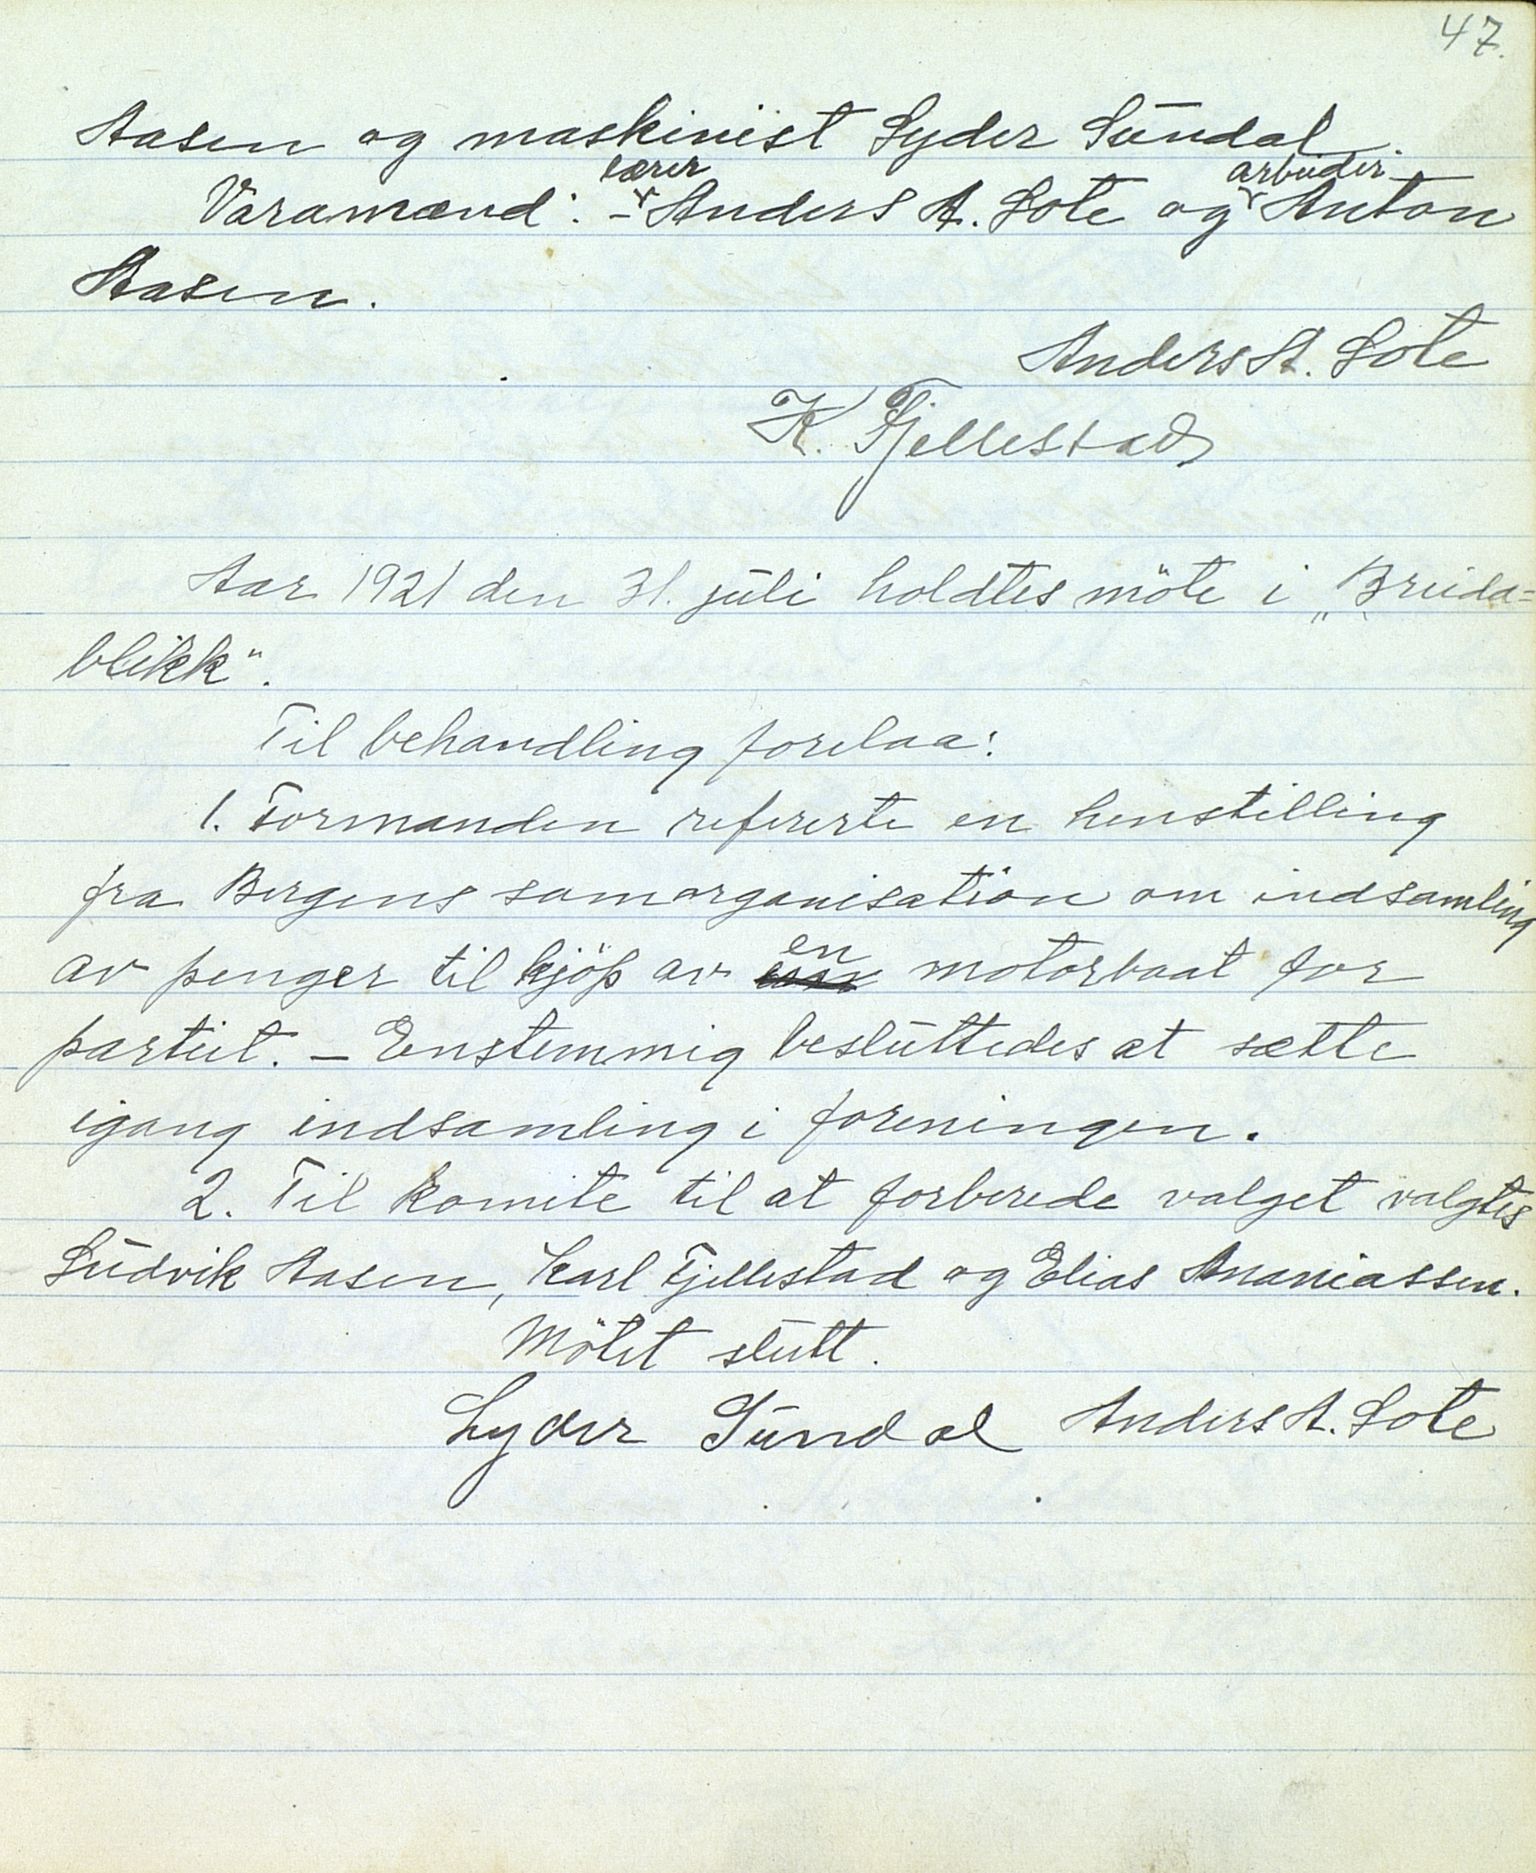 47.
Aasen og maskinist Lyder Sündal.
Varamænd: - lærer Anders A. Lote og arbeider Anton
Aasen.
Anders A. Lote
K. Fjellestad
Aar 1921 den 31. jüli holdtes möte i „Breida=
blikk".
Til behandling forelaa:
1. Formanden refererte en henstilling
fra Bergens samorganisation om indsamling
av penger til kjöp av en motorbaat for
partiet. - Enstemmig beslüttedes at sætte
igang indsamling i foreningen.
2. Til komite til at forberede valget valgtes
Lüdvik Aasen, Karl Fjellestad og Elias Ananiassen.
Mötet slutt.
Lyder Sündal Anders A. Lote